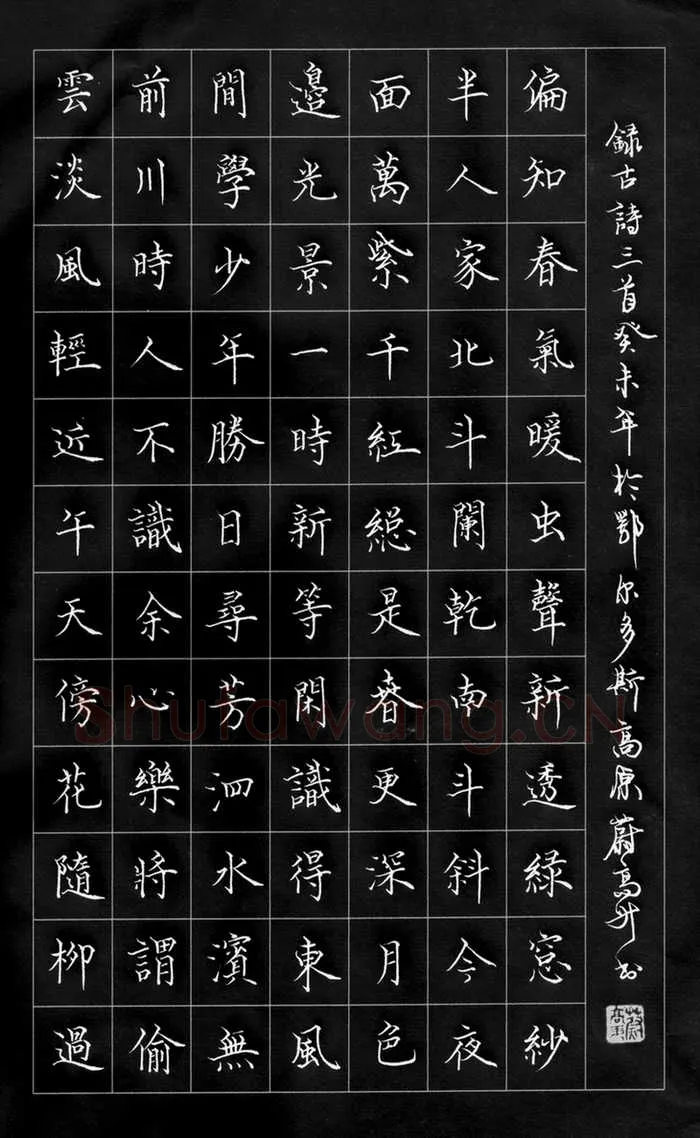 雲淡風輕近午天傍花隨柳過
前川時人不識余心樂將謂偷
間學少年勝日尋芳泗水濱無
邊光景一時新等閑識得東風
面萬紫千紅緫是春更深月色
半人家北斗闌乾南斗斜今夜
偏知春氣暖虫聲新透緑窓紗
録古詩三首癸未年於鄂尔多斯高原蔚高升书
Shufawang.CN